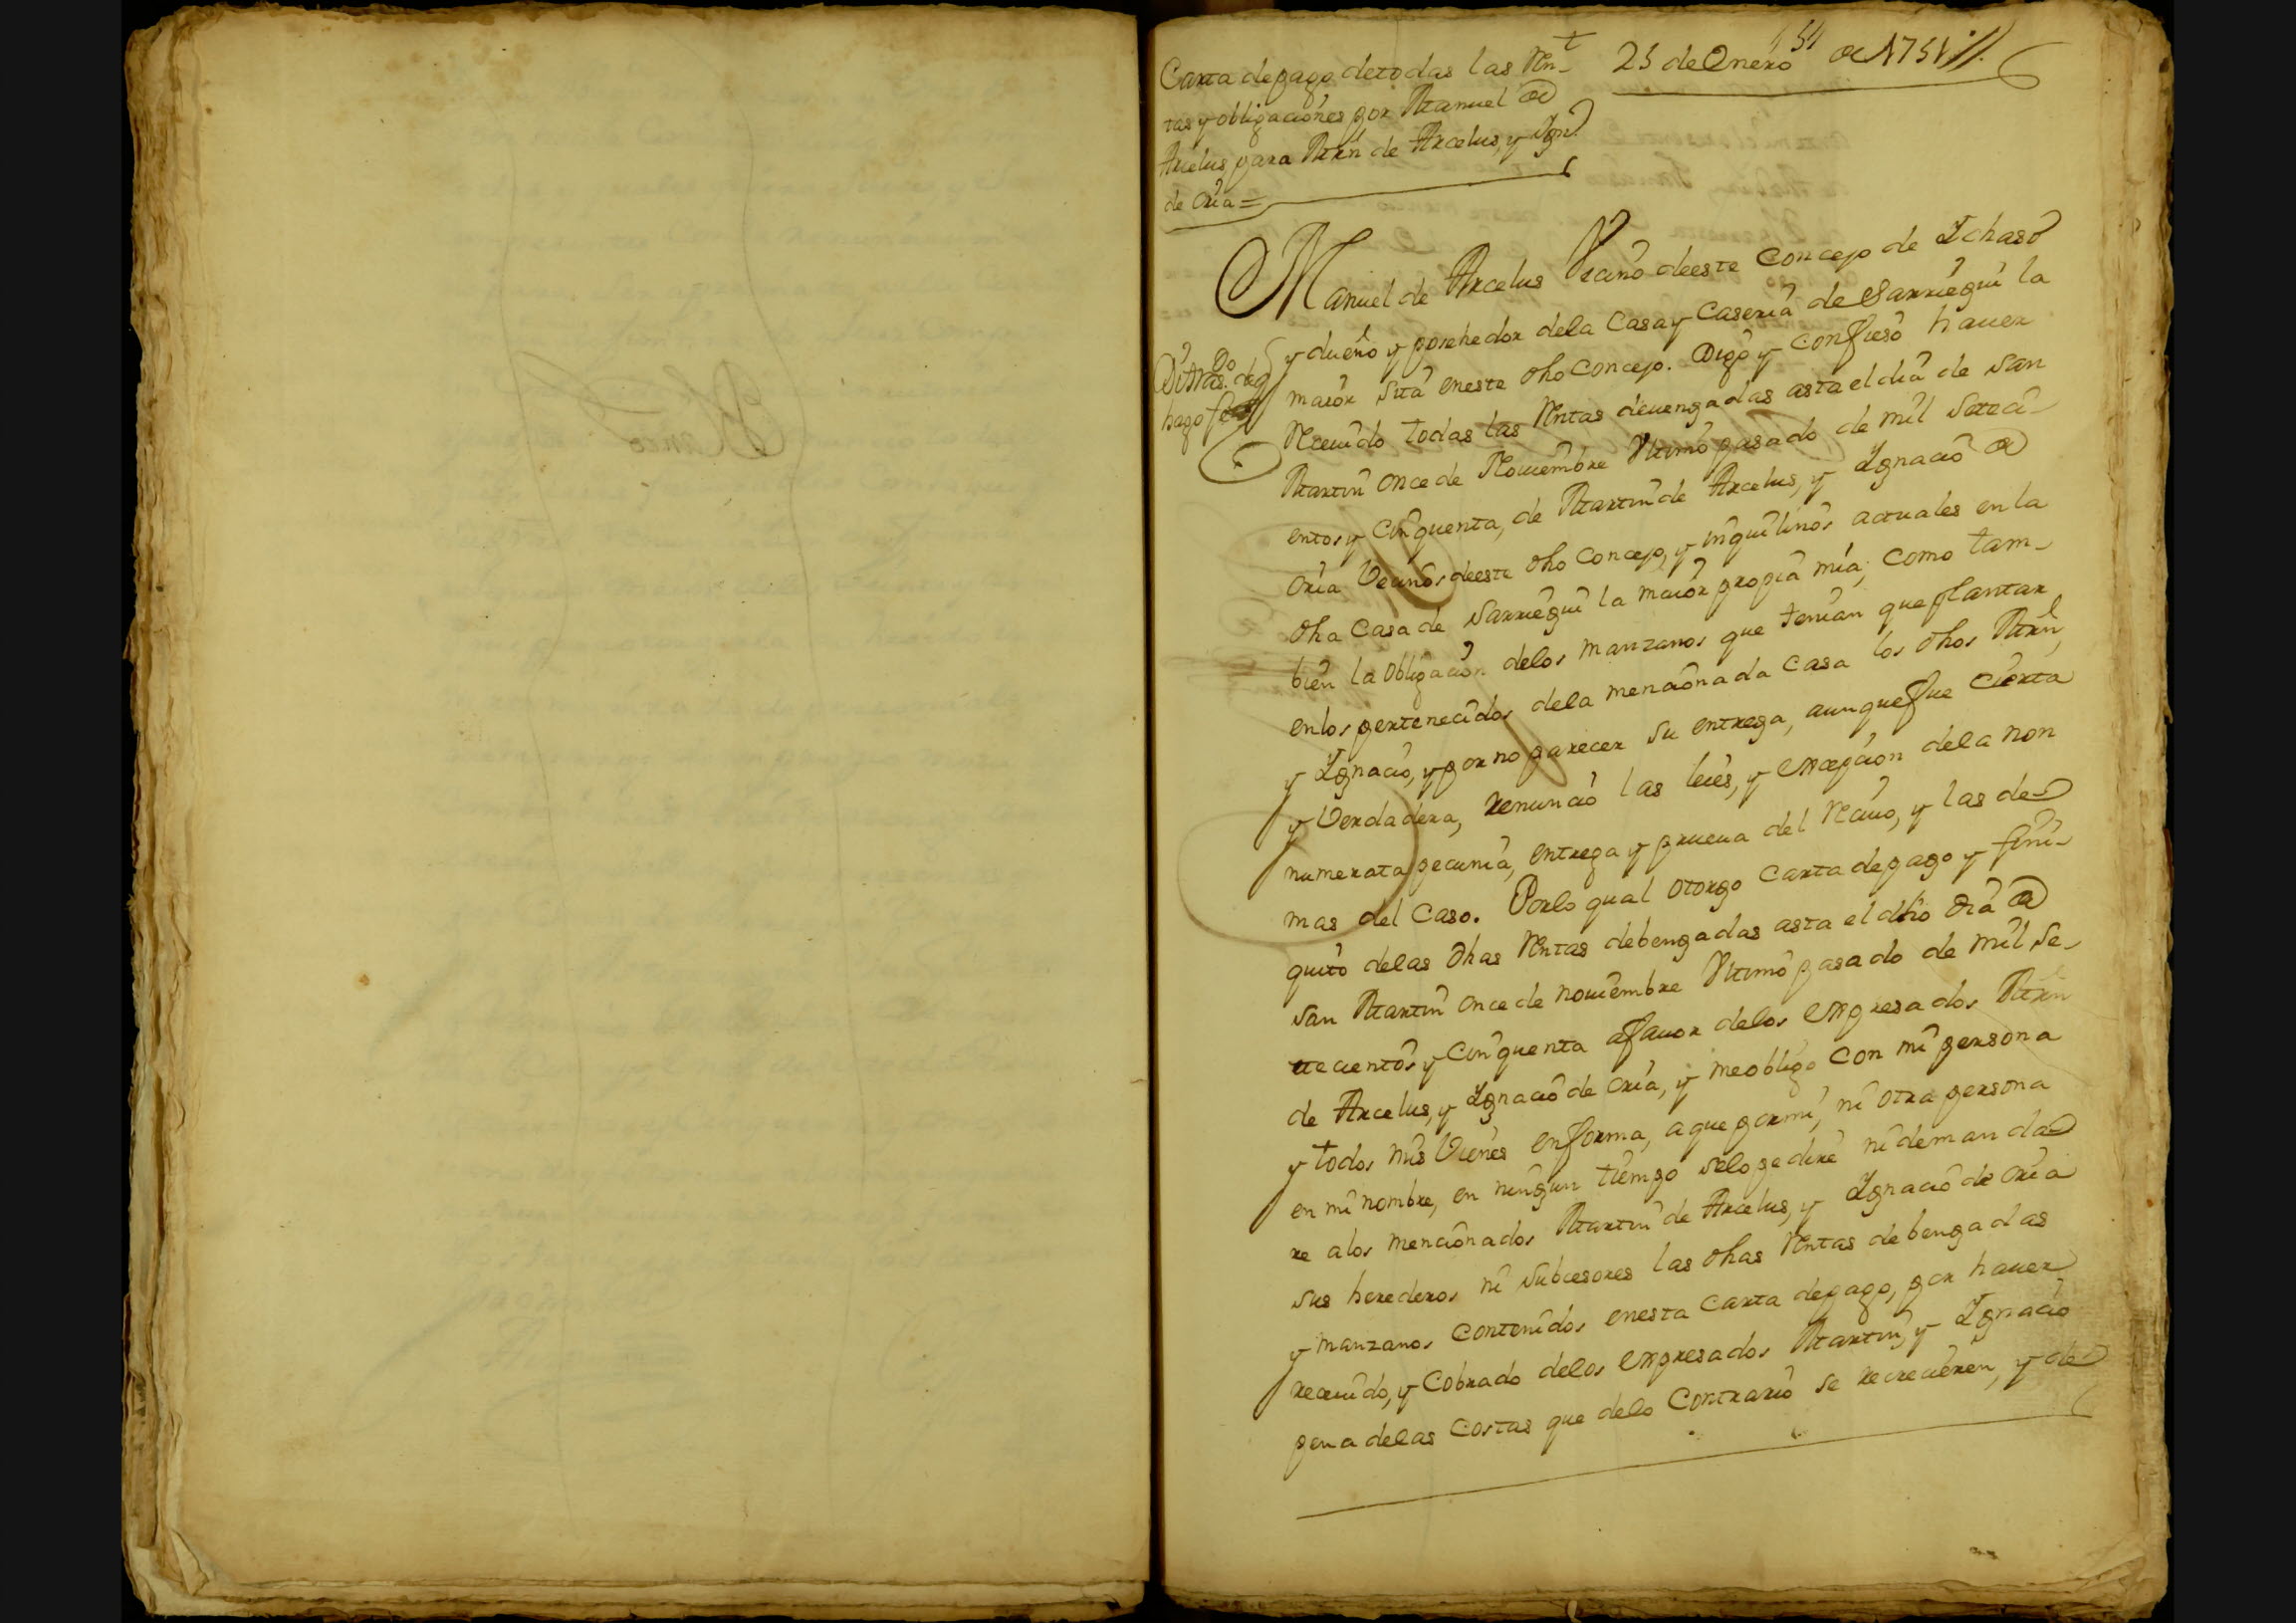 Carta de pago de todas las Ren-
tas y obligaciones por Manuel de
Arcelus, para Mrn de Arcelus, y Ign.º
de Oria =
25 de Enero de 1751 //.
Manuel de Arcelus Vecino de este Concejo de Ichaso
y dueño y posehedor dela Casa y Caseria de Sarriegui la
maior sita en este dho Concejo. Digo y confieso hauer
Receuido todas las Rentas deuengadas asta el dia de San
Martin once de Nouiembre Vltimo pasado de mil Seteci-
entos y Cinquenta, de Martin de Arcelus, y Ignacio de
Oria Vecinos de este dho Concejo, y inquilinos actuales en la
dha Casa de Sarriegui la maior propia mia; como tam-
bien la obligacion delos manzanos que tenian que plantar
en los pertenecidos dela mencionada Casa los dhos Mrn,
y Ignacio, y por no parecer su entrega, aunque fue cierta
y Verdadera, renuncio las leies, y excepcion dela non
numerata pecunia, entrega y prueua del Reciuo, y las de
mas del Caso. Por lo qual otorgo Carta de pago y fini-
quito delas dhas Rentas debengadas asta el dho dia de
San Martin once de nouiembre Vltimo pasado de mil Se-
tecientos y Cinquenta a fauor delos expresados Mrn
de Arcelus, y Ignacio de Oria, y me obligo con mi persona
y todos mis Vienes en forma, a que por mi, ni otra persona
en mi nombre, en ningun tiempo selo pedire ni demanda
re alos mencionados Martin de Arcelus, y Ignacio de Oria
sus herederos ni subcesores las dhas Rentas debengadas
y manzanos Contenidos en esta Carta de pago, por hauer
receuido, y Cobrado delos expresados Martin, y Ignacio
pena delas Costas que delo Contrario se recrecieren, y de
hago fee
Blanco